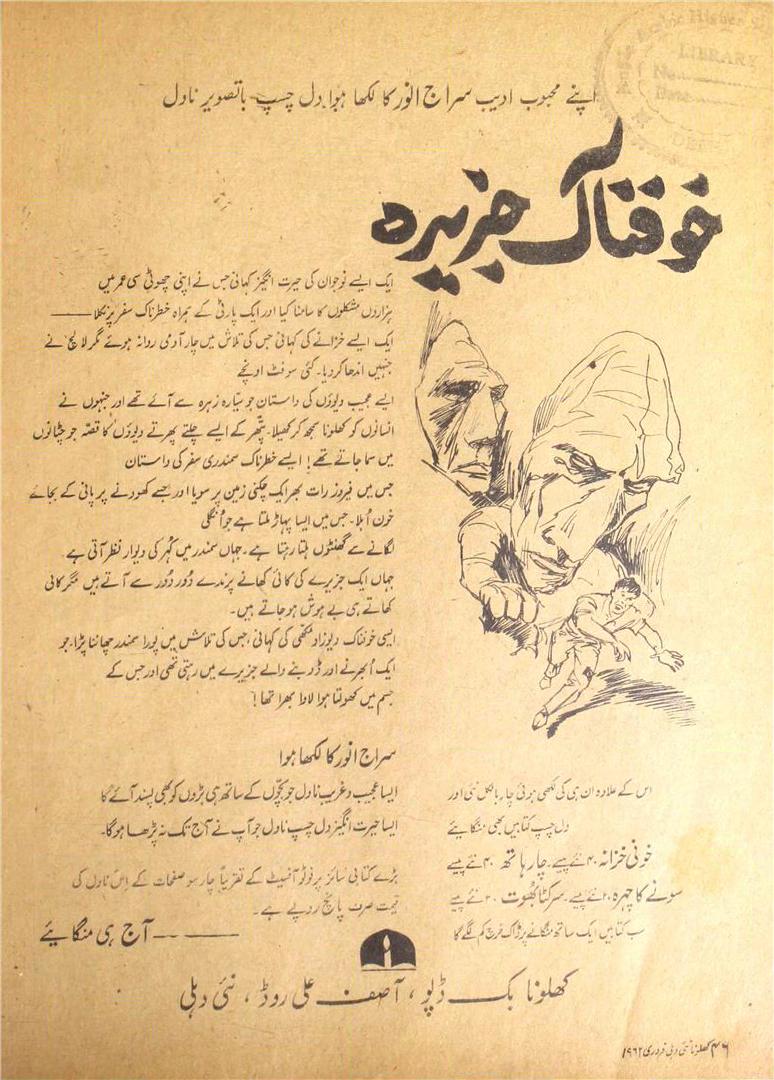 اپنے محبوب ادیب سراج انور کا لکھا ہوا دل چسپ باتصویر ناول
خوفناک جزیرہ
ایک ایسے نوجوان کی حیرت انگیز کہانی جس نے اپنی چھوٹی سی عمر میں
ہزاروں مشکلوں کا سامنا کیا اور ایک پارٹی کے ہمراہ خطرناک سفر پر نکلا ——
ایک ایسے خزانے کی کہانی جس کی تلاش میں چار آدمی روانہ ہوئے مگر لالچ نے
جنہیں اندھا کر دیا۔ کئی سو فٹ اونچے
ایسے عجیب دیوؤں کی داستان جو سیارہ زہرہ سے آئے تھے اور جنہوں نے
انسانوں کو کھلونا سمجھ کر کھیلا۔ پتھر کے ایسے چلتے پھرتے دیوؤں کا قصّہ جو چٹانوں
میں سما جاتے تھے! ایسے خطرناک سمندری سفر کی داستان
جس میں فیروز رات بھر ایک چکنی زمین پر سویا اور جسے کھودنے پر پانی کے بجائے
خون اُبلا۔ جس میں ایسا پہاڑ ملتا ہے جو اُنگلی
لگانے سے گھنٹوں ہلتا رہتا ہے۔ جہاں سمندر میں کُہر کی دیوار نظر آتی ہے
جہاں ایک جزیرے کی کائی کھانے پرندے دُور دُور سے آتے ہیں مگر کائی
کھاتے ہی بے ہوش ہو جاتے ہیں۔
ایسی خوفناک دیوزاد مکھی کی کہانی، جس کی تلاش میں پورا سمندر چھاننا پڑا۔ جو
ایک اُبھرنے اور ڈوبنے والے جزیرے میں رہتی تھی اور جس کے
جسم میں کھولتا ہوا لاوا بھرا تھا!
سراج انور کا لکھا ہوا
ایسا عجیب و غریب ناول جو بچّوں کے ساتھ ہی بڑوں کو بھی پسند آئے گا
ایسا حیرت انگیز دل چسپ ناول جو آپ نے آج تک نہ پڑھا ہوگا۔
بڑے کتابی سائز پر فوٹو آفسیٹ کے تقریباً چار سو صفحات کے اِس ناول کی
قیمت صرف پانچ روپے ہے۔
آج ہی منگائیے
اس کے علاوہ ان ہی کی لکھی ہوئی چار بالکل نئی اور
دل چسپ کتابیں بھی منگائیے
خونی خزانہ ۴۰ نئے پیسے۔ چار ہاتھ ۴۰ نئے پیسے
سونے کا چہرہ نئے پیسے۔ سرکٹا بھوت نئے پیسے
سب کتابیں ایک ساتھ منگانے پر ڈاک خرچ کم لگے گا
کھلونا بک ڈپو، آصف علی روڈ، نئی دہلی
۴۶ کھلونا نئی دہلی فروری ۱۹۶۲
LIBRARY
No.
Date